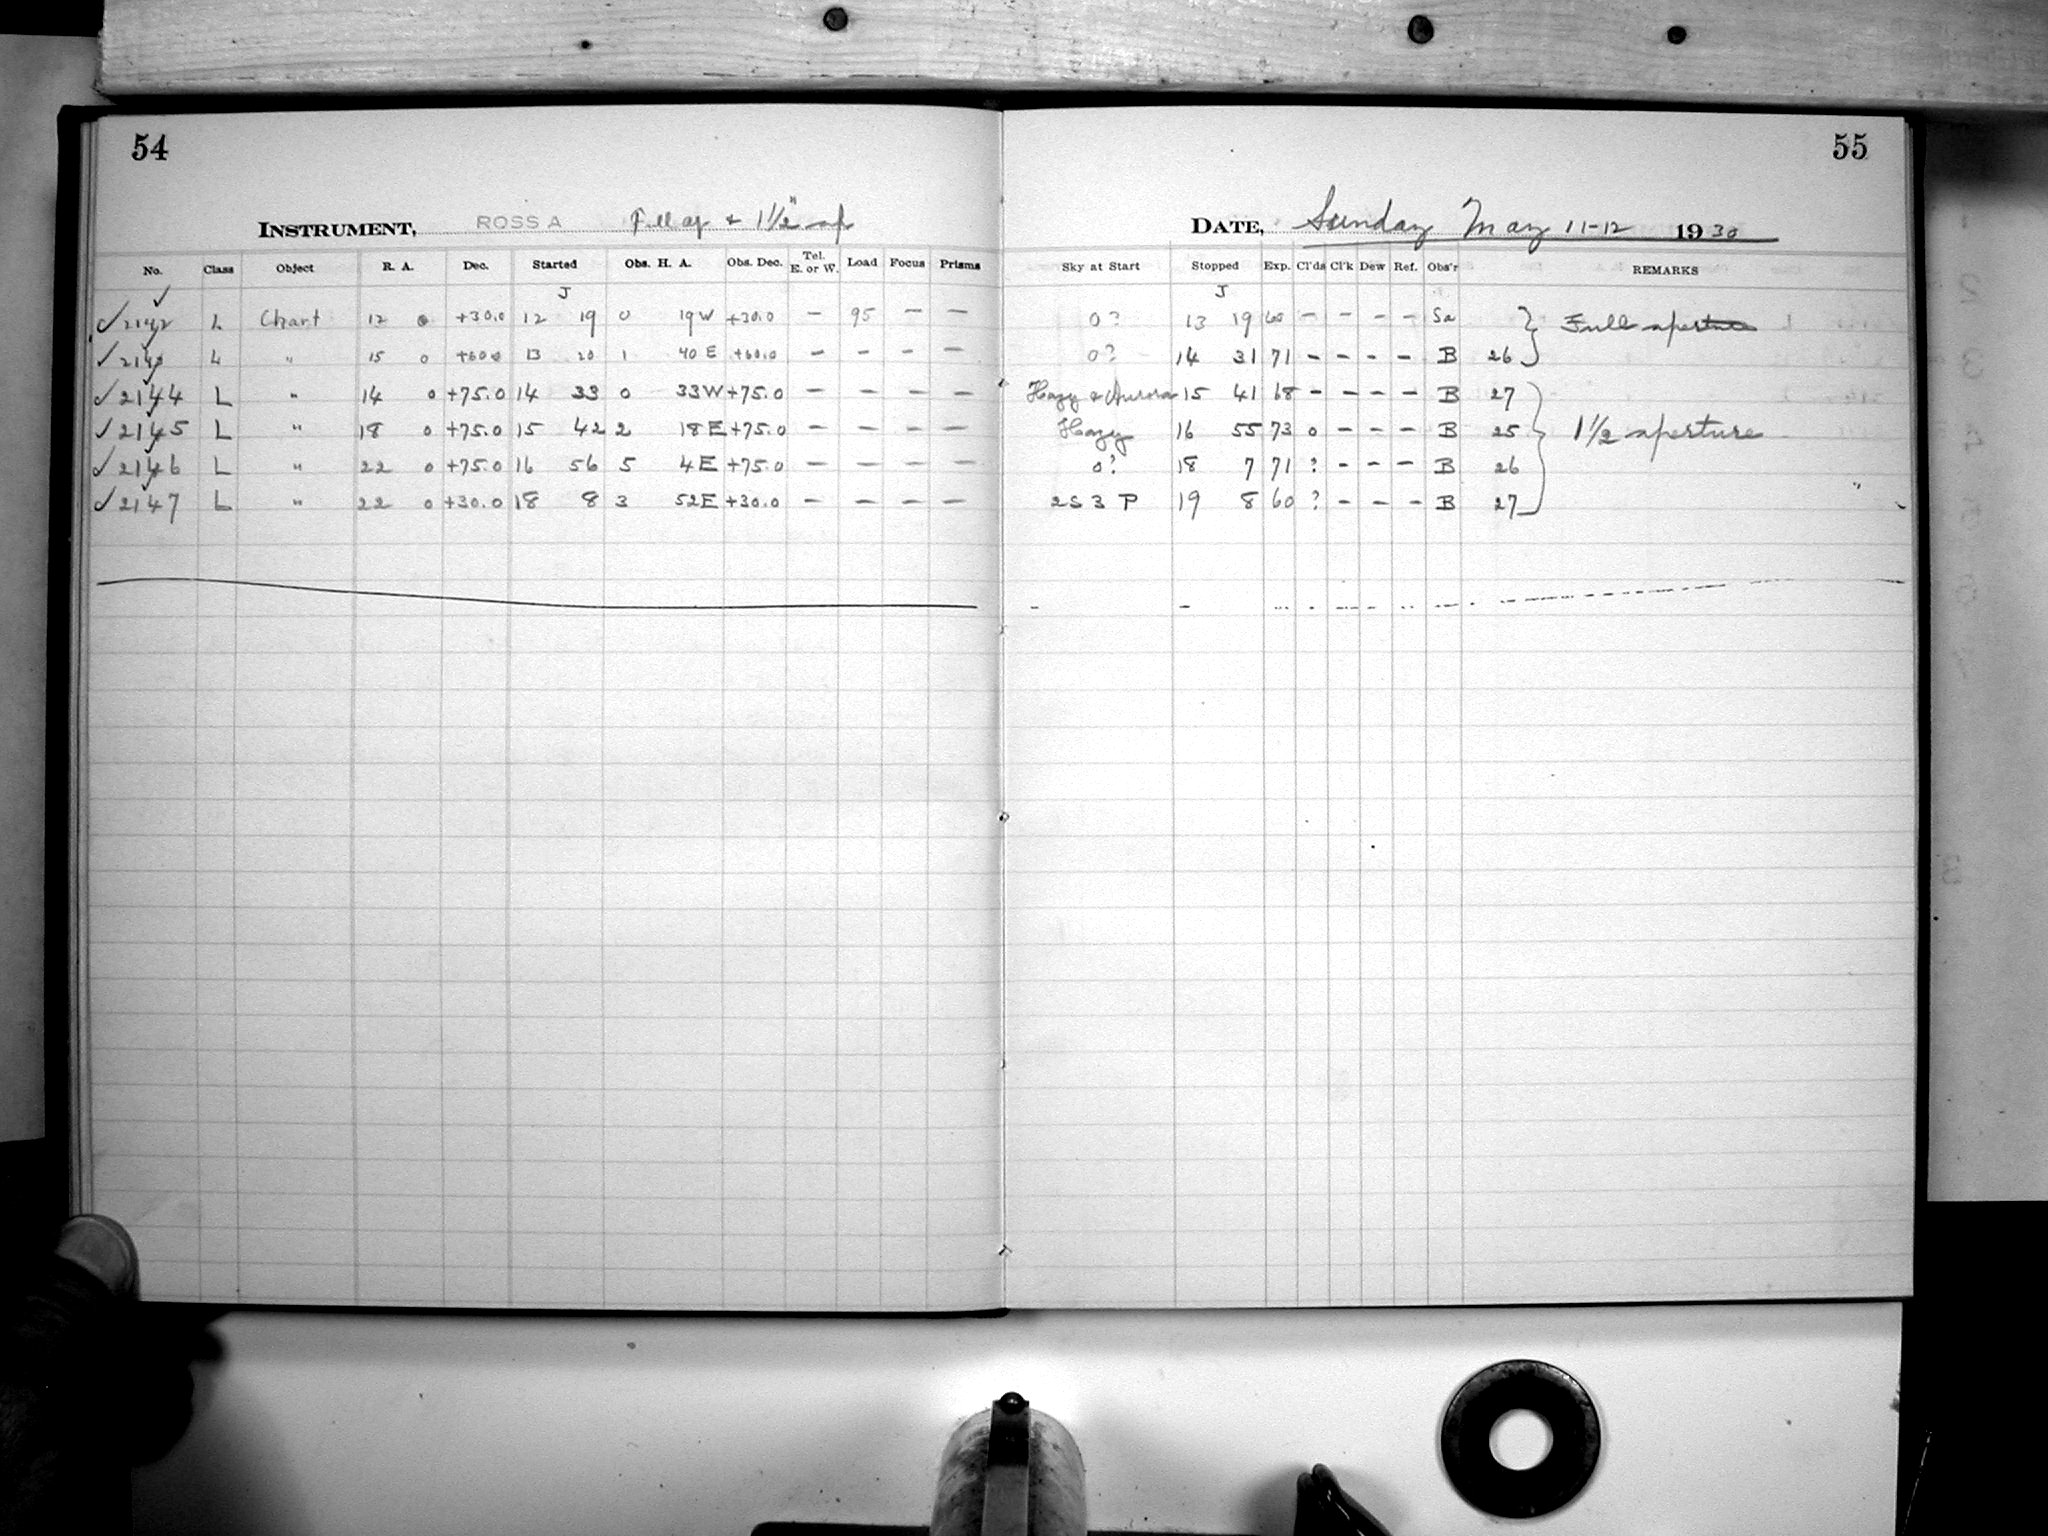 54
55
INSTRUMENT, ROSS A Full ap & 1½" ap
DATE, Sunday May 11-12 1930
No. Class Object R. A. Dec. Started Obs. H. A. Obs. Dec. Tel. E. or W. Load Focus Prisms Sky at Start Stopped Exp. Cl'ds Cl'k Dew Ref. Obs'r REMARKS
J J
✓ 2142 L Chart 12 0 +30.0 12 19 0 19W +30.0 – 95 – – 0? 13 19 60 – – – – Sa Full aperture
✓ L " 15 0 +60.0 13 20 1 40 E +60.0 – – – – 0? 14 31 71 – – – – B 26
✓ 2144 L " 14 0 +75.0 14 33 0 33W +75.0 – – – – Hazy & Aurora 15 41 68 – – – – B 27
✓ 2145 L " 18 0 +75.0 15 42 2 18 E +75.0 – – – – Hazy 16 55 73 0 – – – B 25 1½ aperture
✓ 2146 L " 22 0 +75.0 16 56 5 4 E +75.0 – – – – 0? 18 7 71 ? – – – B 26
✓ 2147 L " 22 0 +30.0 18 8 3 52E +30.0 – – – – 2S 3 P 19 8 60 ? – – – B 27